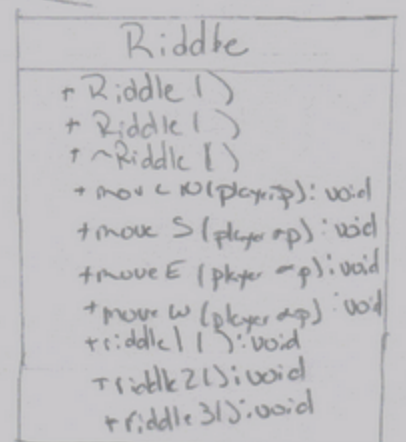 Riddle
+ Riddle()
+ Riddle()
+ ~Riddle()
+ move N(player *p): void
+ move S(player *p): void
+ move E (player *p): void
+ move W (player *p): void
+ riddle1(): void
+ riddle2(): void
+ riddle3(): void